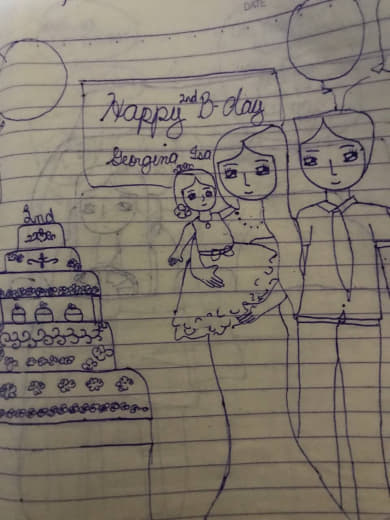 DATE
Happy 2nd B-day
Georgina Isa
2nd